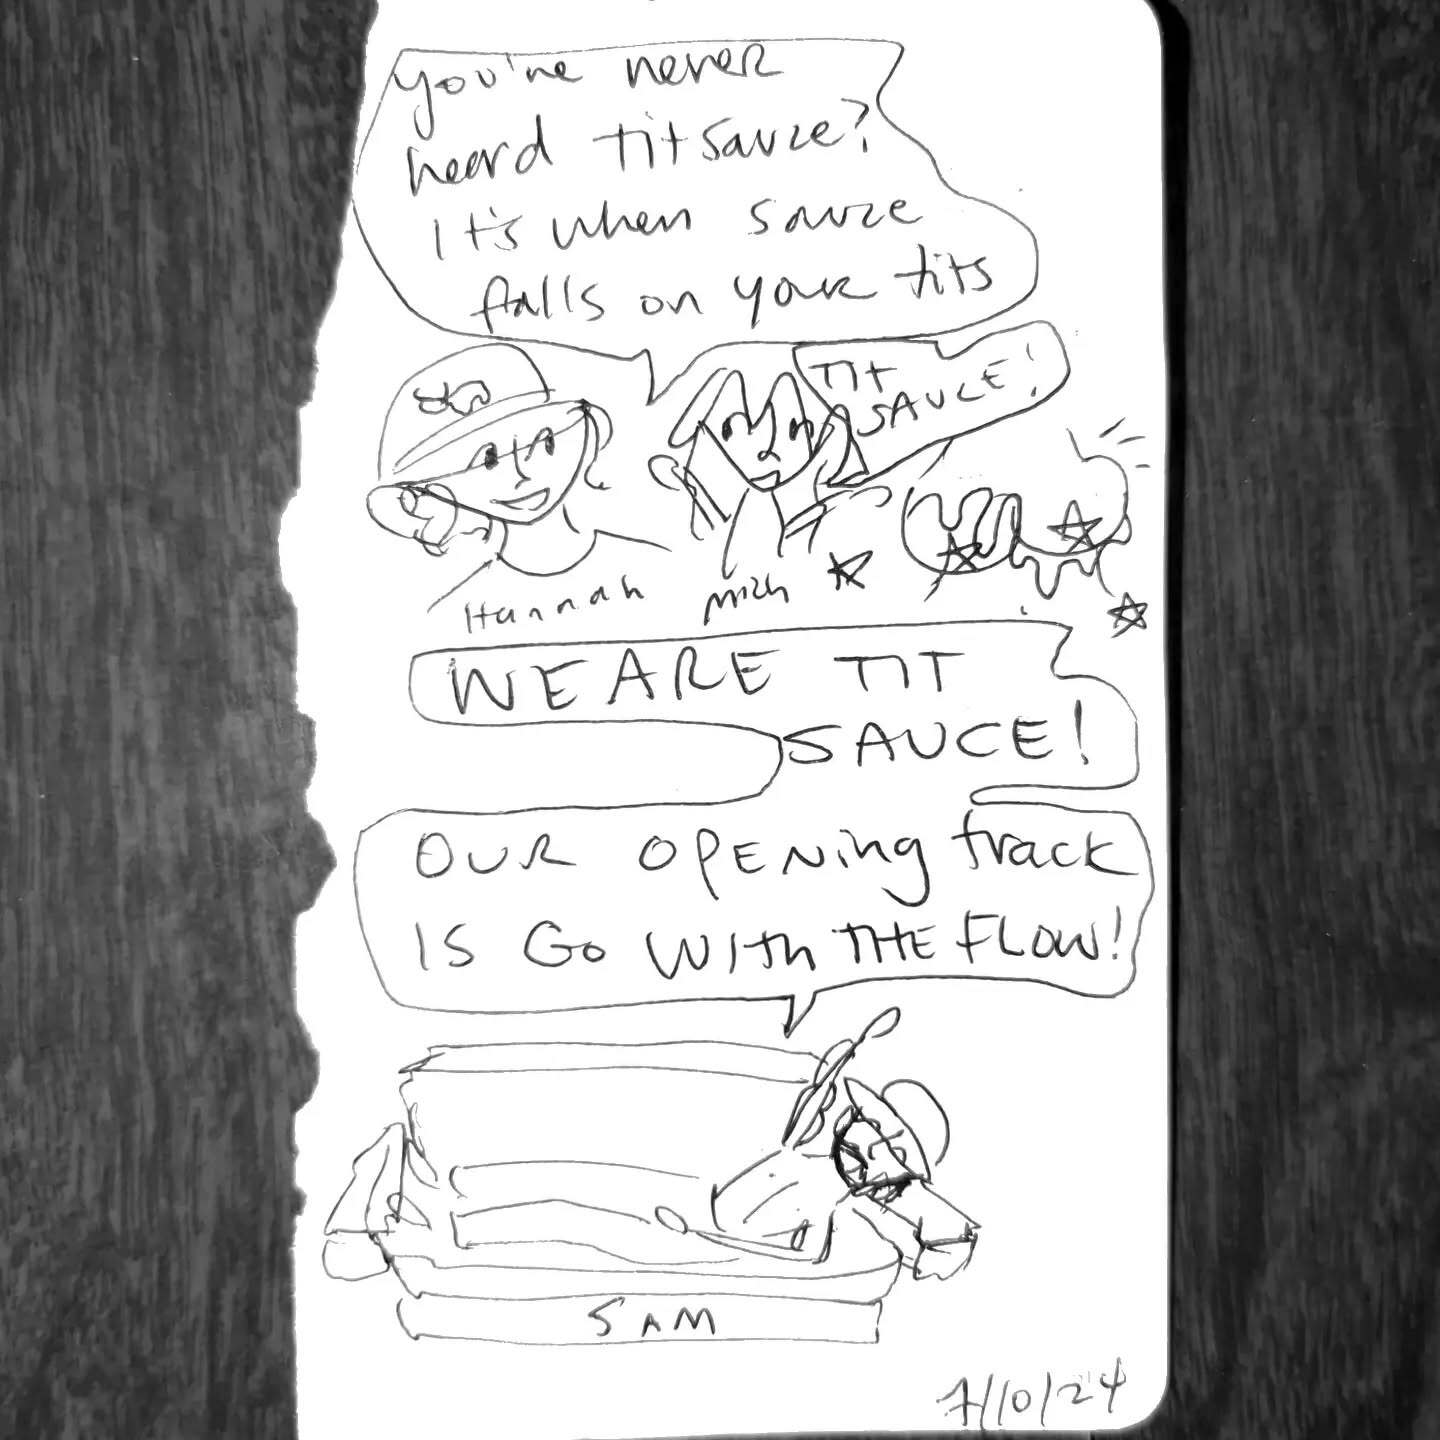 you've never
heard titsauce?
It's when sauce
falls on your tits
TIT
SAUCE!
Hannah
mich
WE ARE TIT
SAUCE!
OUR OPENing track
IS GO WITh THE FLOW!
SAM
7/10/24